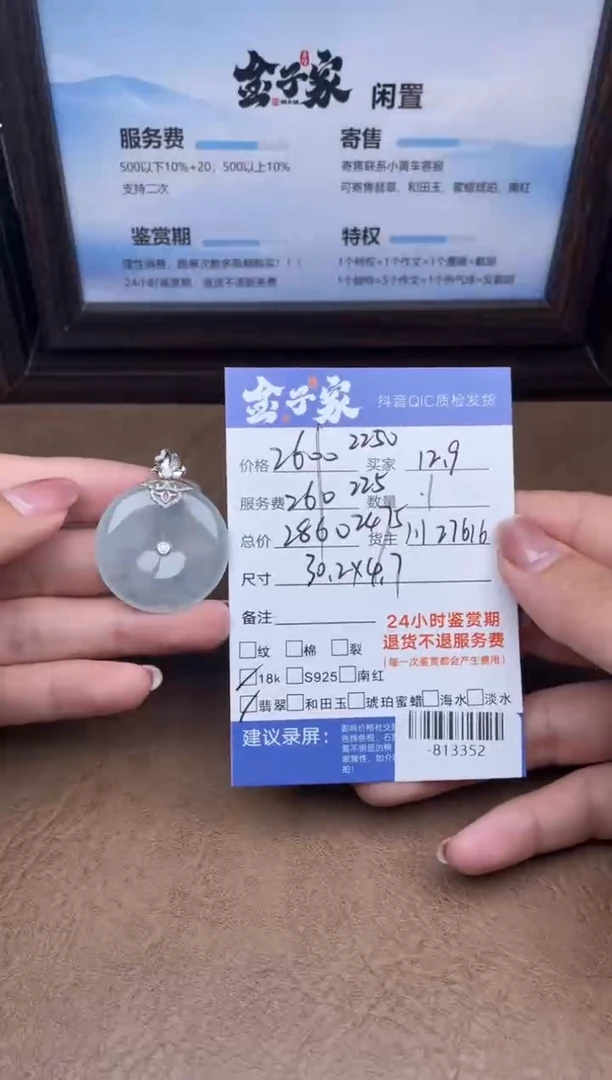 金子家 闲置
服务费 寄售
500以下10%+20；500以上10% 寄售联系小黄车客服
支持二次 可寄售翡翠、和田玉、蜜蜡琥珀、南红
鉴赏期 特权
24小时鉴赏期，退货不退服务费
金子家 抖音QIC质检发货
价格 2600 2250 买家 12.9
服务费 260 225 数量 1
总价 2860 2475 货主 27616
尺寸 30.2×4.7
备注
24小时鉴赏期
退货不退服务费
(每一次鉴赏都会产生费用)
纹 棉 裂
18k S925 南红
翡翠 和田玉 琥珀蜜蜡 海水 淡水
建议录屏：
-813352